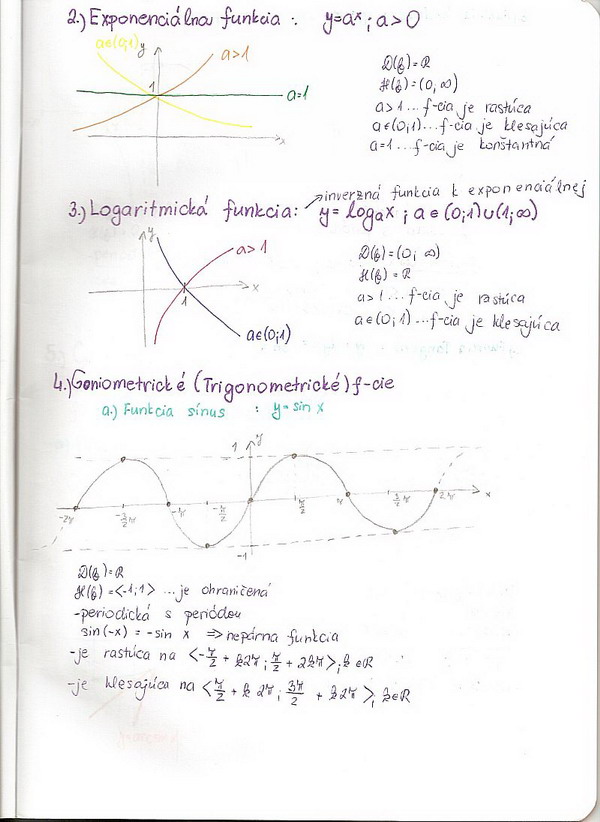 2.) Exponenciálna funkcia : y=aˣ ; a>0
a∈(0;1) y a>1
1 a=1
x
D(f)=R
H(f)=(0, ∞)
a>1 ... f-cia je rastúca
a∈(0,1) ... f-cia je klesajúca
a=1 ... f-cia je konštantná
inverzná funkcia k exponenciálnej
3.) Logaritmická funkcia: y=logₐx ; a∈(0;1)∪(1;∞)
y a>1
1 x
a∈(0;1)
D(f)=(0; ∞)
H(f)=R
a>1 ... f-cia je rastúca
a∈(0;1) ... f-cia je klesajúca
4.) Goniometrické (Trigonometrické) f-cie
a.) Funkcia sínus : y=sin x
1 y
-2π -3/2π -π -π/2 π/2 π 3/2π 2π x
-1
D(f)=R
H(f)=<-1;1> ... je ohraničená
-periodická s periódou
sin(-x) = -sin x => nepárna funkcia
-je rastúca na <-π/2 + k2π ; π/2 + 2kπ>, k∈R
-je klesajúca na <π/2 + k2π ; 3π/2 + k2π>, k∈R